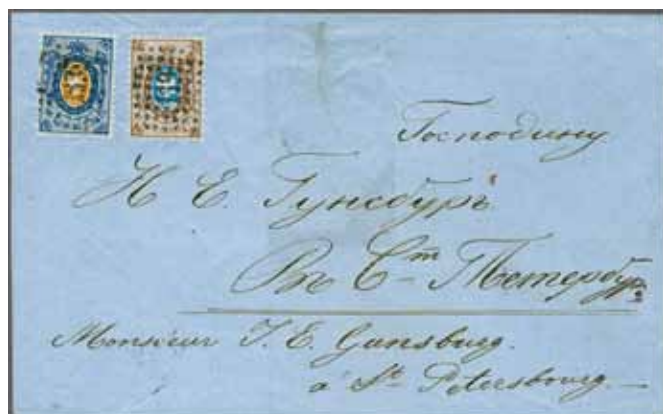 Господину
Н Е. Гунсбургъ
Въ Ст Петербург
Monsieur J. E. Gunsburg.
à St Petersbourg.